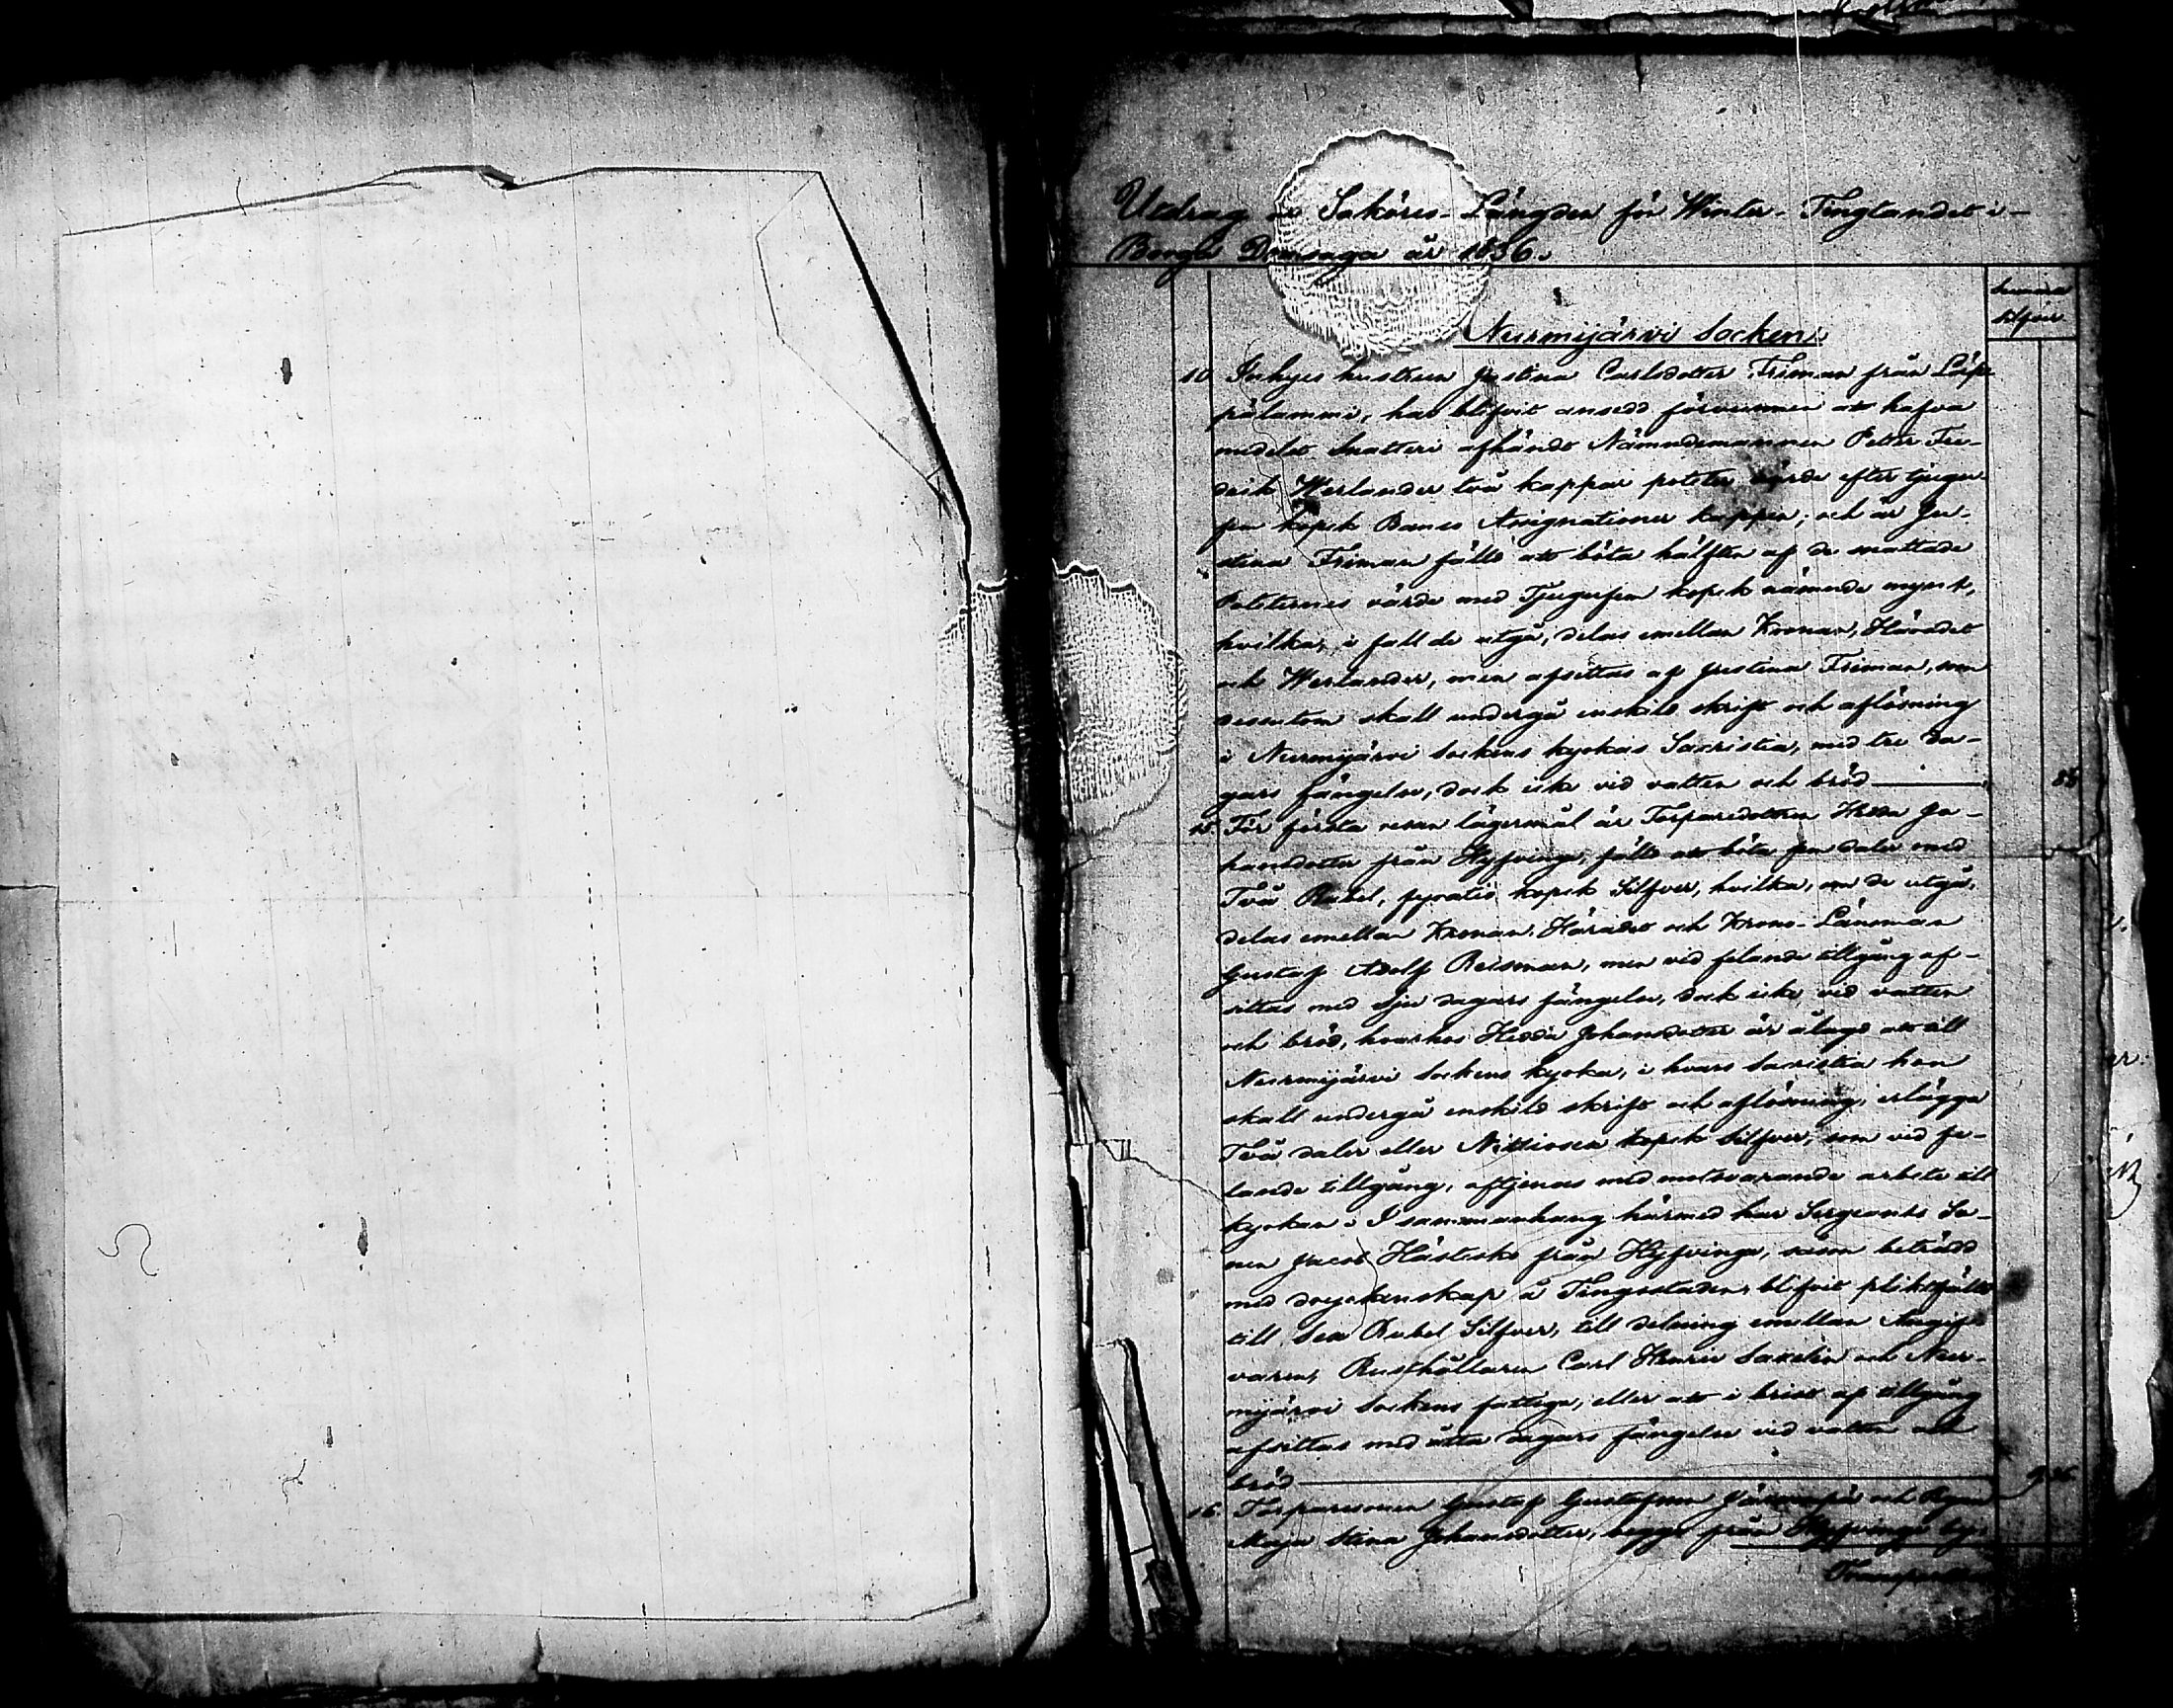 Utdrag ur Saköres-Längden för Winter-Tingtandet i
Borgå Domsaga år 1836.
Summa
Silfver
Nurmijärvi Socken
10 Inhyses hustrun Justina Carlsdotter Friman från Läpe
pälammi, har blifvit ansedd förvunnen att hafva
medelst snatteri afhändt Nämndemannen Petter Fre-
drik Werlander två kappar potäter värde efter tjugu-
fem kopek Banco Assignationer kappen; och är Ju-
stina Friman fälld att böta hälften af de snattade
Potäternes värde med Tjugufem kopek nämnde mynt,
hvilka, i fall de utgå, delas emellan Kronan, Häradet
och Werlander, men afsittas af Justina Friman, som
dessutom skall undergå enskild skrift och aflösning
i Nurmijärvi Sockens kyrkas Sacristia, med tre da-
gars fängelse, dock icke vid vatten och bröd
15. För första resan lägersmål är Torparedottren Hedda Jo-
hansdotter från Hyfvinge, fälld att böta fem daler med
Två Rubel, fyratio kopek Silfver, hvilka, om de utgå,
delas emellan Kronan, Häradet och Krono-Länsman
Gustaf Adolf Reisman, men vid felande tillgång af-
sittas med sju dagars fängelse, dock icke vid vatten
och bröd, hvarhos Hedda Johansdotter är ålagd att till
Nurmijärvi Sockens kyrka, i hvars Sacristia hon
skall undergå enskild skrift och aflösning, erlägga
Två daler eller Nittiosex kopek Silfver, som vid fe-
lande tillgång, aftjenas med motsvarande arbete till
kyrkan. I sammanhang härmed har Sergeants So-
nen Jacob Hästsko från Hyfvinge, såsom beträdd
med dryckenskap å Tingsstaden, blifvit pliktfälld
till Sex Rubel Silfver, till delning emellan Angif-
varen, Rusthållaren Carl Henric Saxelin och Nur-
mijärvi Sockens fattige, eller att i brist af tillgång
afsittas med åtta dagars fängelse vid vatten och
bröd 9 36
16. Torparesonen Gustaf Gustafsson och Pigan
Maja Stina Johansdotter, begge från Hyfvinge by,
Transporteras